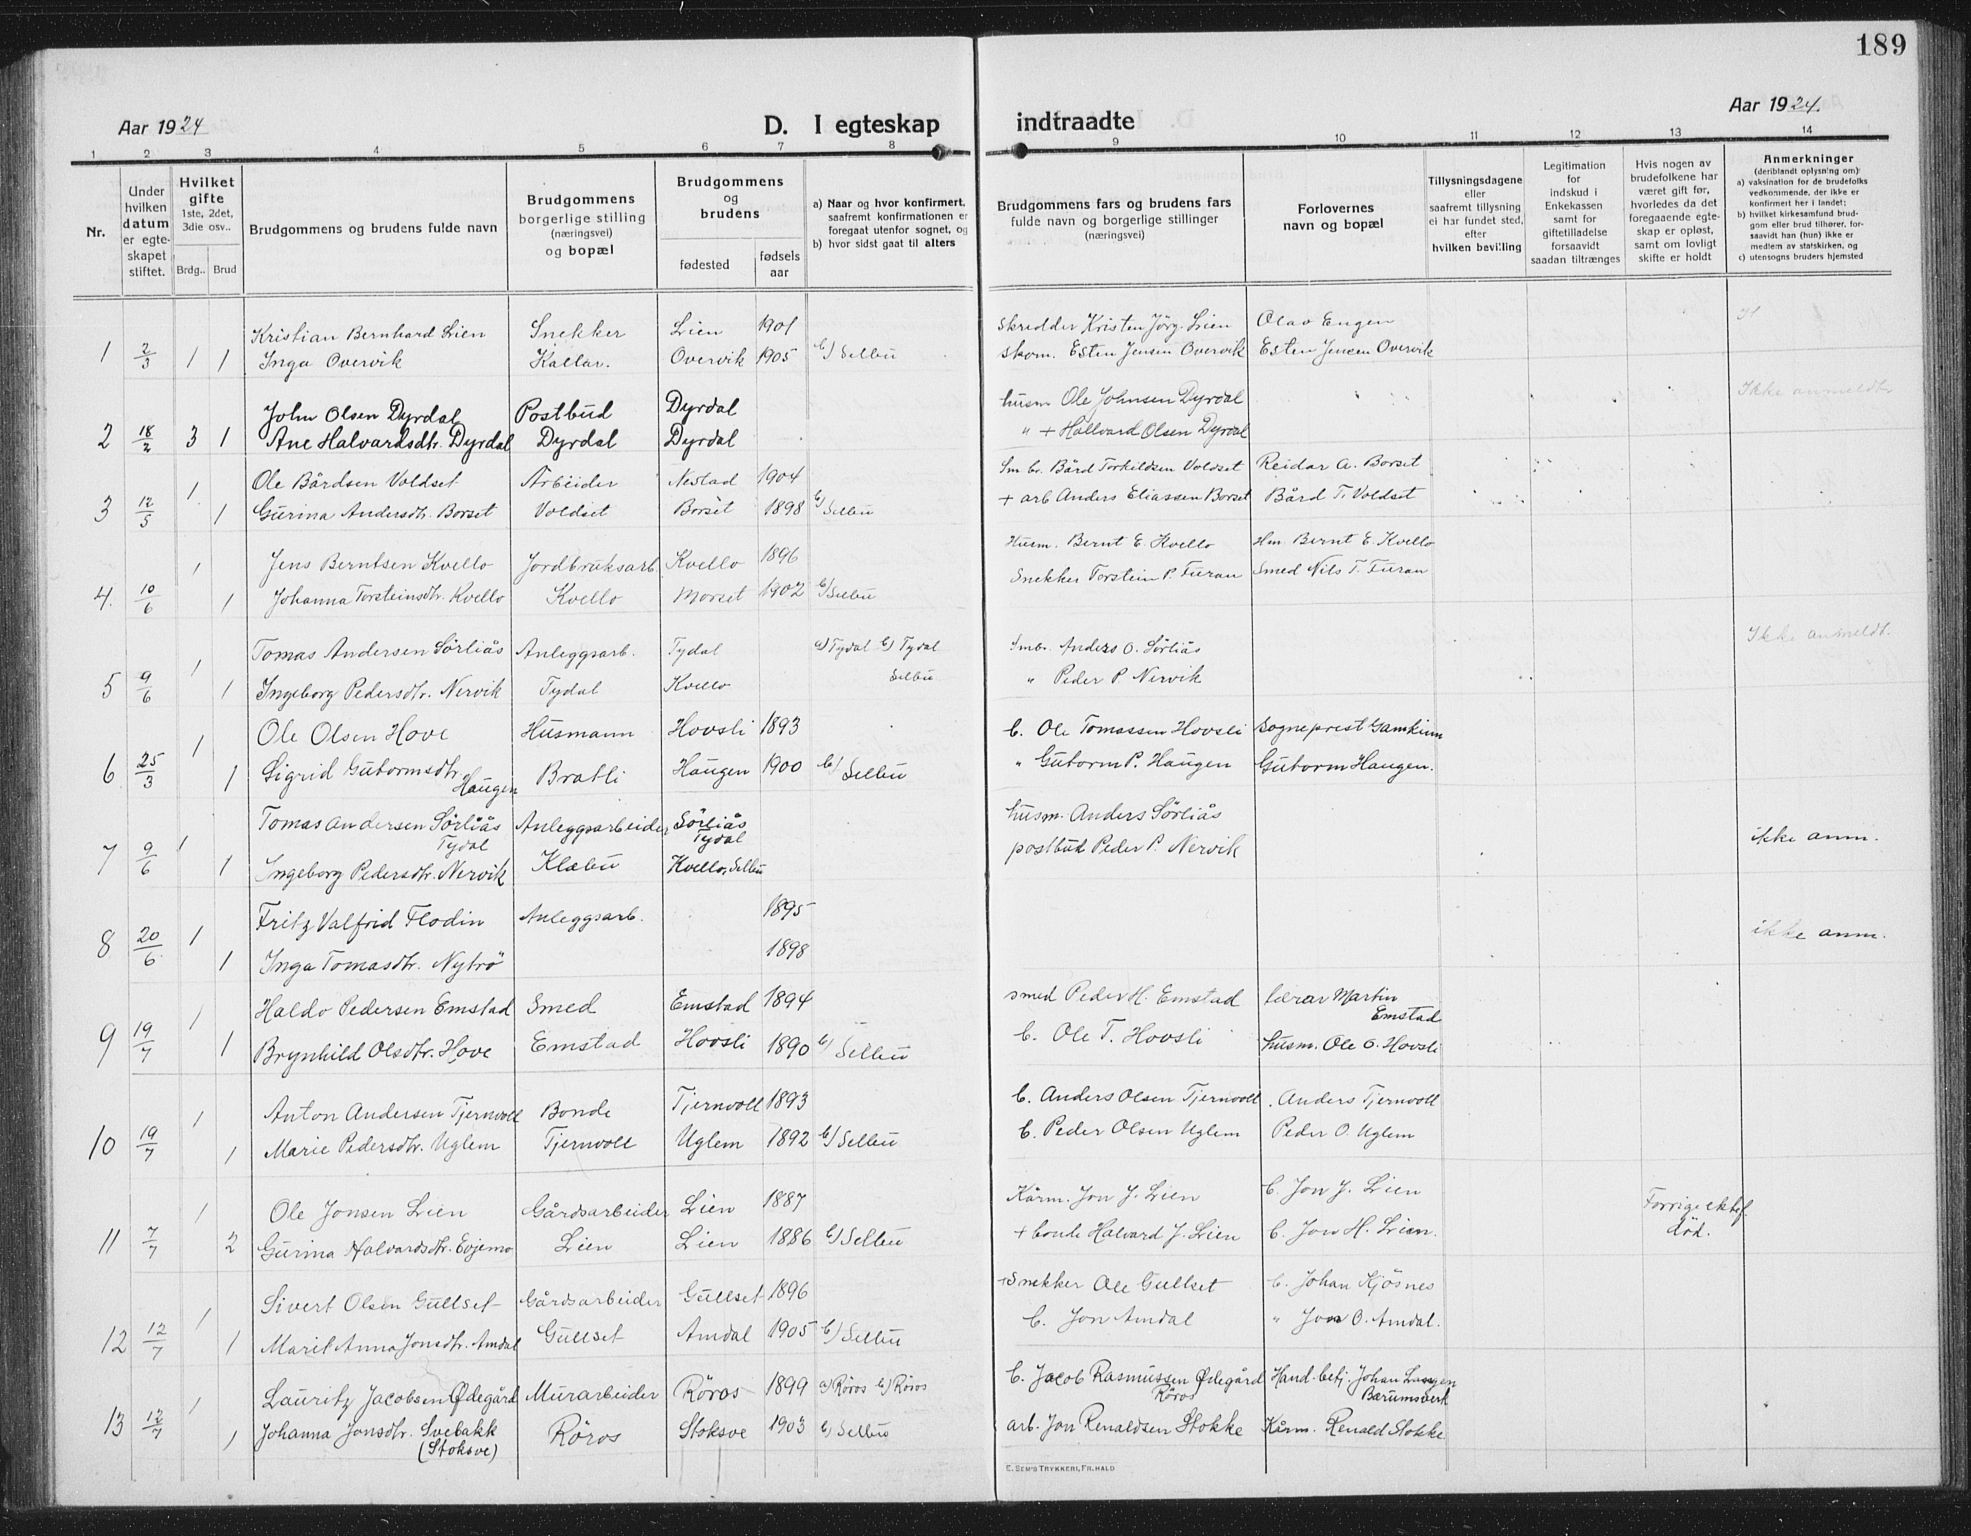 189
Aar 1924
D. I egteskap indtraadte
Aar 1924.
1 2 3 4 5 6 7 8 9 10 11 12 13 14
Nr.
Under hvilken datum er egteskapet stiftet.
Hvilket gifte 1ste, 2det, 3die osv..
Brdg.. Brud
Brudgommens og brudens fulde navn
Brudgommens borgerlige stilling (næringsvei) og bopæl
Brudgommens og brudens
fødested
fødsels aar
a) Naar og hvor konfirmert, saafremt konfirmationen er foregaat utenfor sognet, og
b) hvor sidst gaat til alters
Brudgommens fars og brudens fars fulde navn og borgerlige stillinger (næringsvei)
Forlovernes navn og bopæl
Tillysningsdagene eller saafremt tillysning ei har fundet sted, efter hvilken bevilling
Legitimation for indskud i Enkekassen samt for giftetilladelse forsaavidt saadan tiltrænges
Hvis nogen av brudefolkene har været gift før, hvorledes da det foregaaende egteskap er opløst, samt om lovligt skifte er holdt
Anmerkninger
(deriblandt oplysning om):
a) vaksination for de brudefolks vedkommende, der ikke er konfirmert her i landet;
b) hvilket kirkesamfund brudgom eller brud tilhører, forsaavidt han (hun) ikke er medlem av statskirken, og
c) utensogns bruders hjemsted
Kristian Bernhard Lien Snekker Lien 1901 Skredder Kristen Jörg. Lien Olav Engen
1 2/3 1 1 Inga Overvik Kallar. Overvik 1905 b) Selbu Skom. Esten Jensen Overvik Esten Jensen Overvik
John Olsen Dyrdal Postbud Dyrdal husm Ole Johnsen Dyrdal Ikke anmeldt
2 18/2 3 1 Ane Halvardsdtr. Dyrdal Dyrdal Dyrdal " + Hallvard Olsen Dyrdal
Ole Bårdsen Voldset Arbeider Nestad 1904 Sm br. Bård Torkildsen Voldset Reidar A. Borset
3 12/5 1 1 Gurina Andersdtr. Borset Voldset Börset 1898 b) Selbu + arb Anders Eliassen Borset Bård T. Voldset
Jens Berntsen Kvello Jordbruksarb. Kvello 1896 Husm. Bernt E. Kvello Hm. Bernt E. Kvello
4. 10/6 1 1 Johanna Torsteinsdtr. Kvello Kvello Morset 1902 b) Selbu Snekker Torstein P. Furan Smed Nils T. Furan
Tomas Andersen Sörliås Anleggsarb. Tydal a) Tydal b) Tydal Smbr. Anders O. Sörliås Ikke anmeldt.
5 9/6 1 1 Ingeborg Pedersdtr. Nervik Tydal Kvello Selbu " Peder P. Nervik
Ole Olsen Hove Husmann Hovsli 1893 b. Ole Tomassen Hovsli Sogneprest Gamkinn
6 25/3 1 1 Sigrid Gutormsdtr. Haugen Bratli Haugen 1900 b) Selbu " Gutorm P. Haugen Gutorm Haugen.
Tomas Andersen Sörliås Tydal Anleggsarbeider Sörliås Tydal husm. Anders Sörliås
7 9/6 1 1 Ingeborg Pedersdtr. Nervik Klæbu Kvello, Selbu postbud Peder P. Nervik ikke anm.
Fritz Valfrid Flodin Anleggsarb. 1895
8 20/6 1 1 Inga Tomasdtr. Nytrö 1898 ikke anm.
Haldo Pedersen Emstad Smed Emstad 1894 smed Peder H. Emstad lærar Martin Emstad
9 19/7 1 1 Brynhild Olsdtr. Hove Emstad Hovsli 1890 b) Selbu b. Ole T. Hovsli husm. Ole O. Hovsli
Anton Andersen Tjernvoll Bonde Tjernvoll 1893 b. Anders Olsen Tjernvoll . Anders Tjernvoll
10 19/7 1 1 Marie Pedersdtr. Uglem Tjernvoll Uglem 1892 b) Selbu b. Peder Olsen Uglem Peder O. Uglem
Ole Jonsen Lien Gårdsarbeider Lien 1887 Kårm. Jon J. Lien b. Jon J. Lien Forrige ektef. död.
11 7/7 1 2 Gurina Halvardsdtr. Evjemo Lien Lien 1886 b) Selbu + bonde Halvard J. Lien b. Jon H. Lien.
Sivert Olsen Gullset Gårdsarbeider Gullset 1896 Snekker Ole Gullset b. Johan Kjösnes
12 12/7 1 1 Marit Anna Jonsdtr. Amdal Gullset Amdal 1905 b) Selbu b. Jon Amdal " Jon O. Amdal.
Lauritz Jacobsen Ødegård Murarbeider Röros 1899 a) Röros b) Röros b. Jacob Rasmussen Ødegård Röros Hand. betj. Johan Langen Bærumsverk
13 12/7 1 1 Johanna Jonsdtr. Svebakk (Stoksve) Röros Stoksve 1903 b) Selbu arb. Jon Renaldsen Stokke Kårm. Renald Stokke
E. SEM'S TRYKKERI, FR.HALD